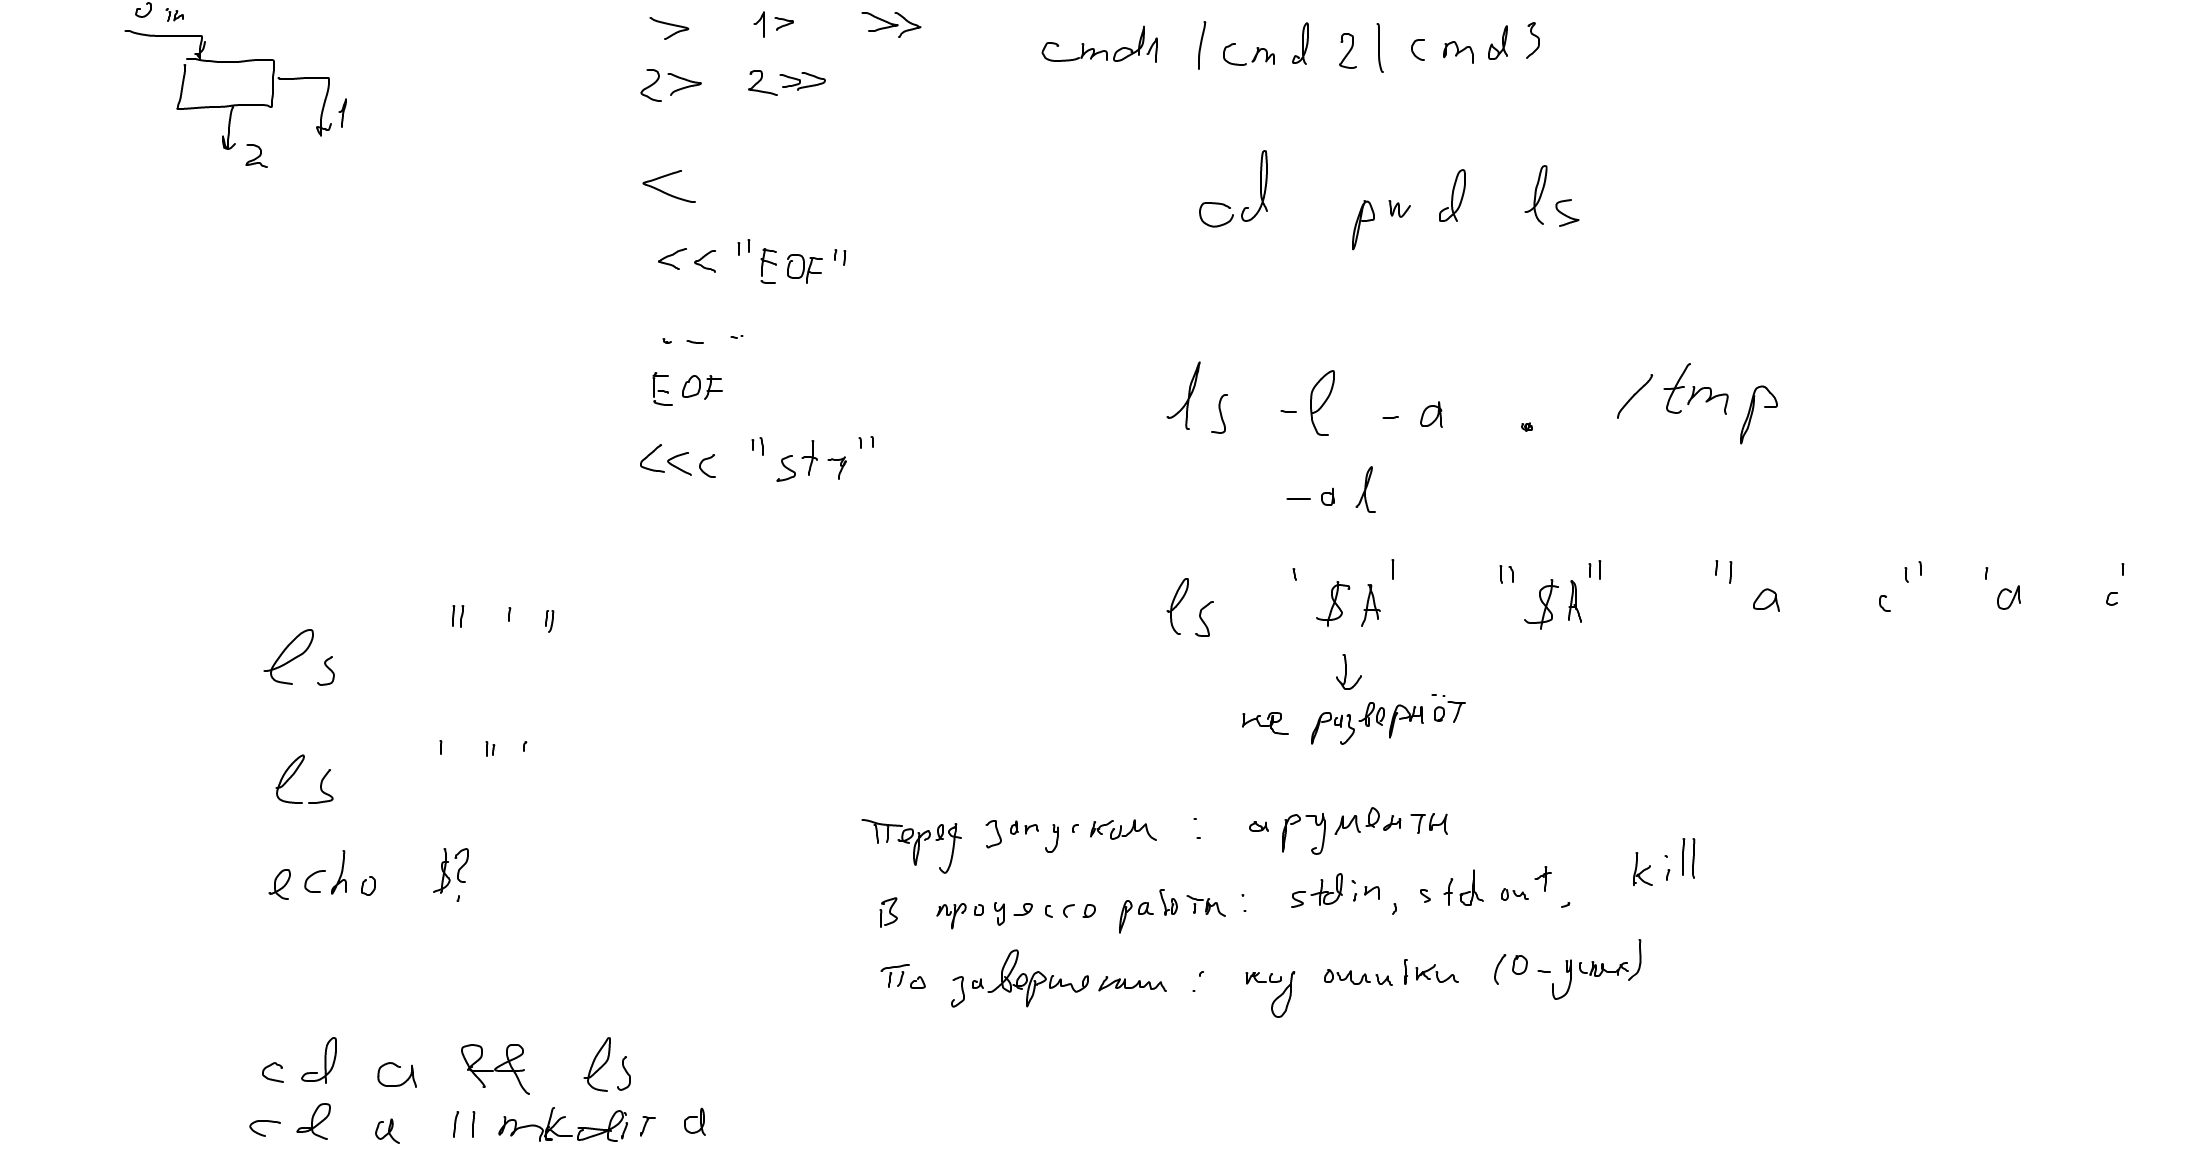 0 in
1
2
> 1> >>
2> 2>>
<
<< "EOF"
....
EOF
<<< "str"
cmd1 | cmd 2 | cmd3
cd pwd ls
ls -l -a . /tmp
-al
ls '$A' "$A" "a c" 'a c'
не развернёт
ls " ' "
ls ' " '
echo $?
Перед запуском : аргументы
В процессе работы : stdin, stdout, kill
По завершении : код ошибки (0 - успех)
cd a && ls
cd a || mkdir a